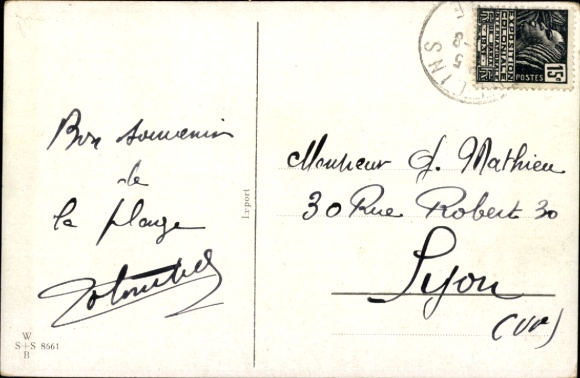 Bon souvenir
de
la plage
W
S+S 8661
B
Export
EXPOSITION
COLONIALE
INTERNATIONALE
PARIS 1931
POSTES
15c
Monsieur J. Mathieu
30 Rue Robert 30
Lyon
(VIe)